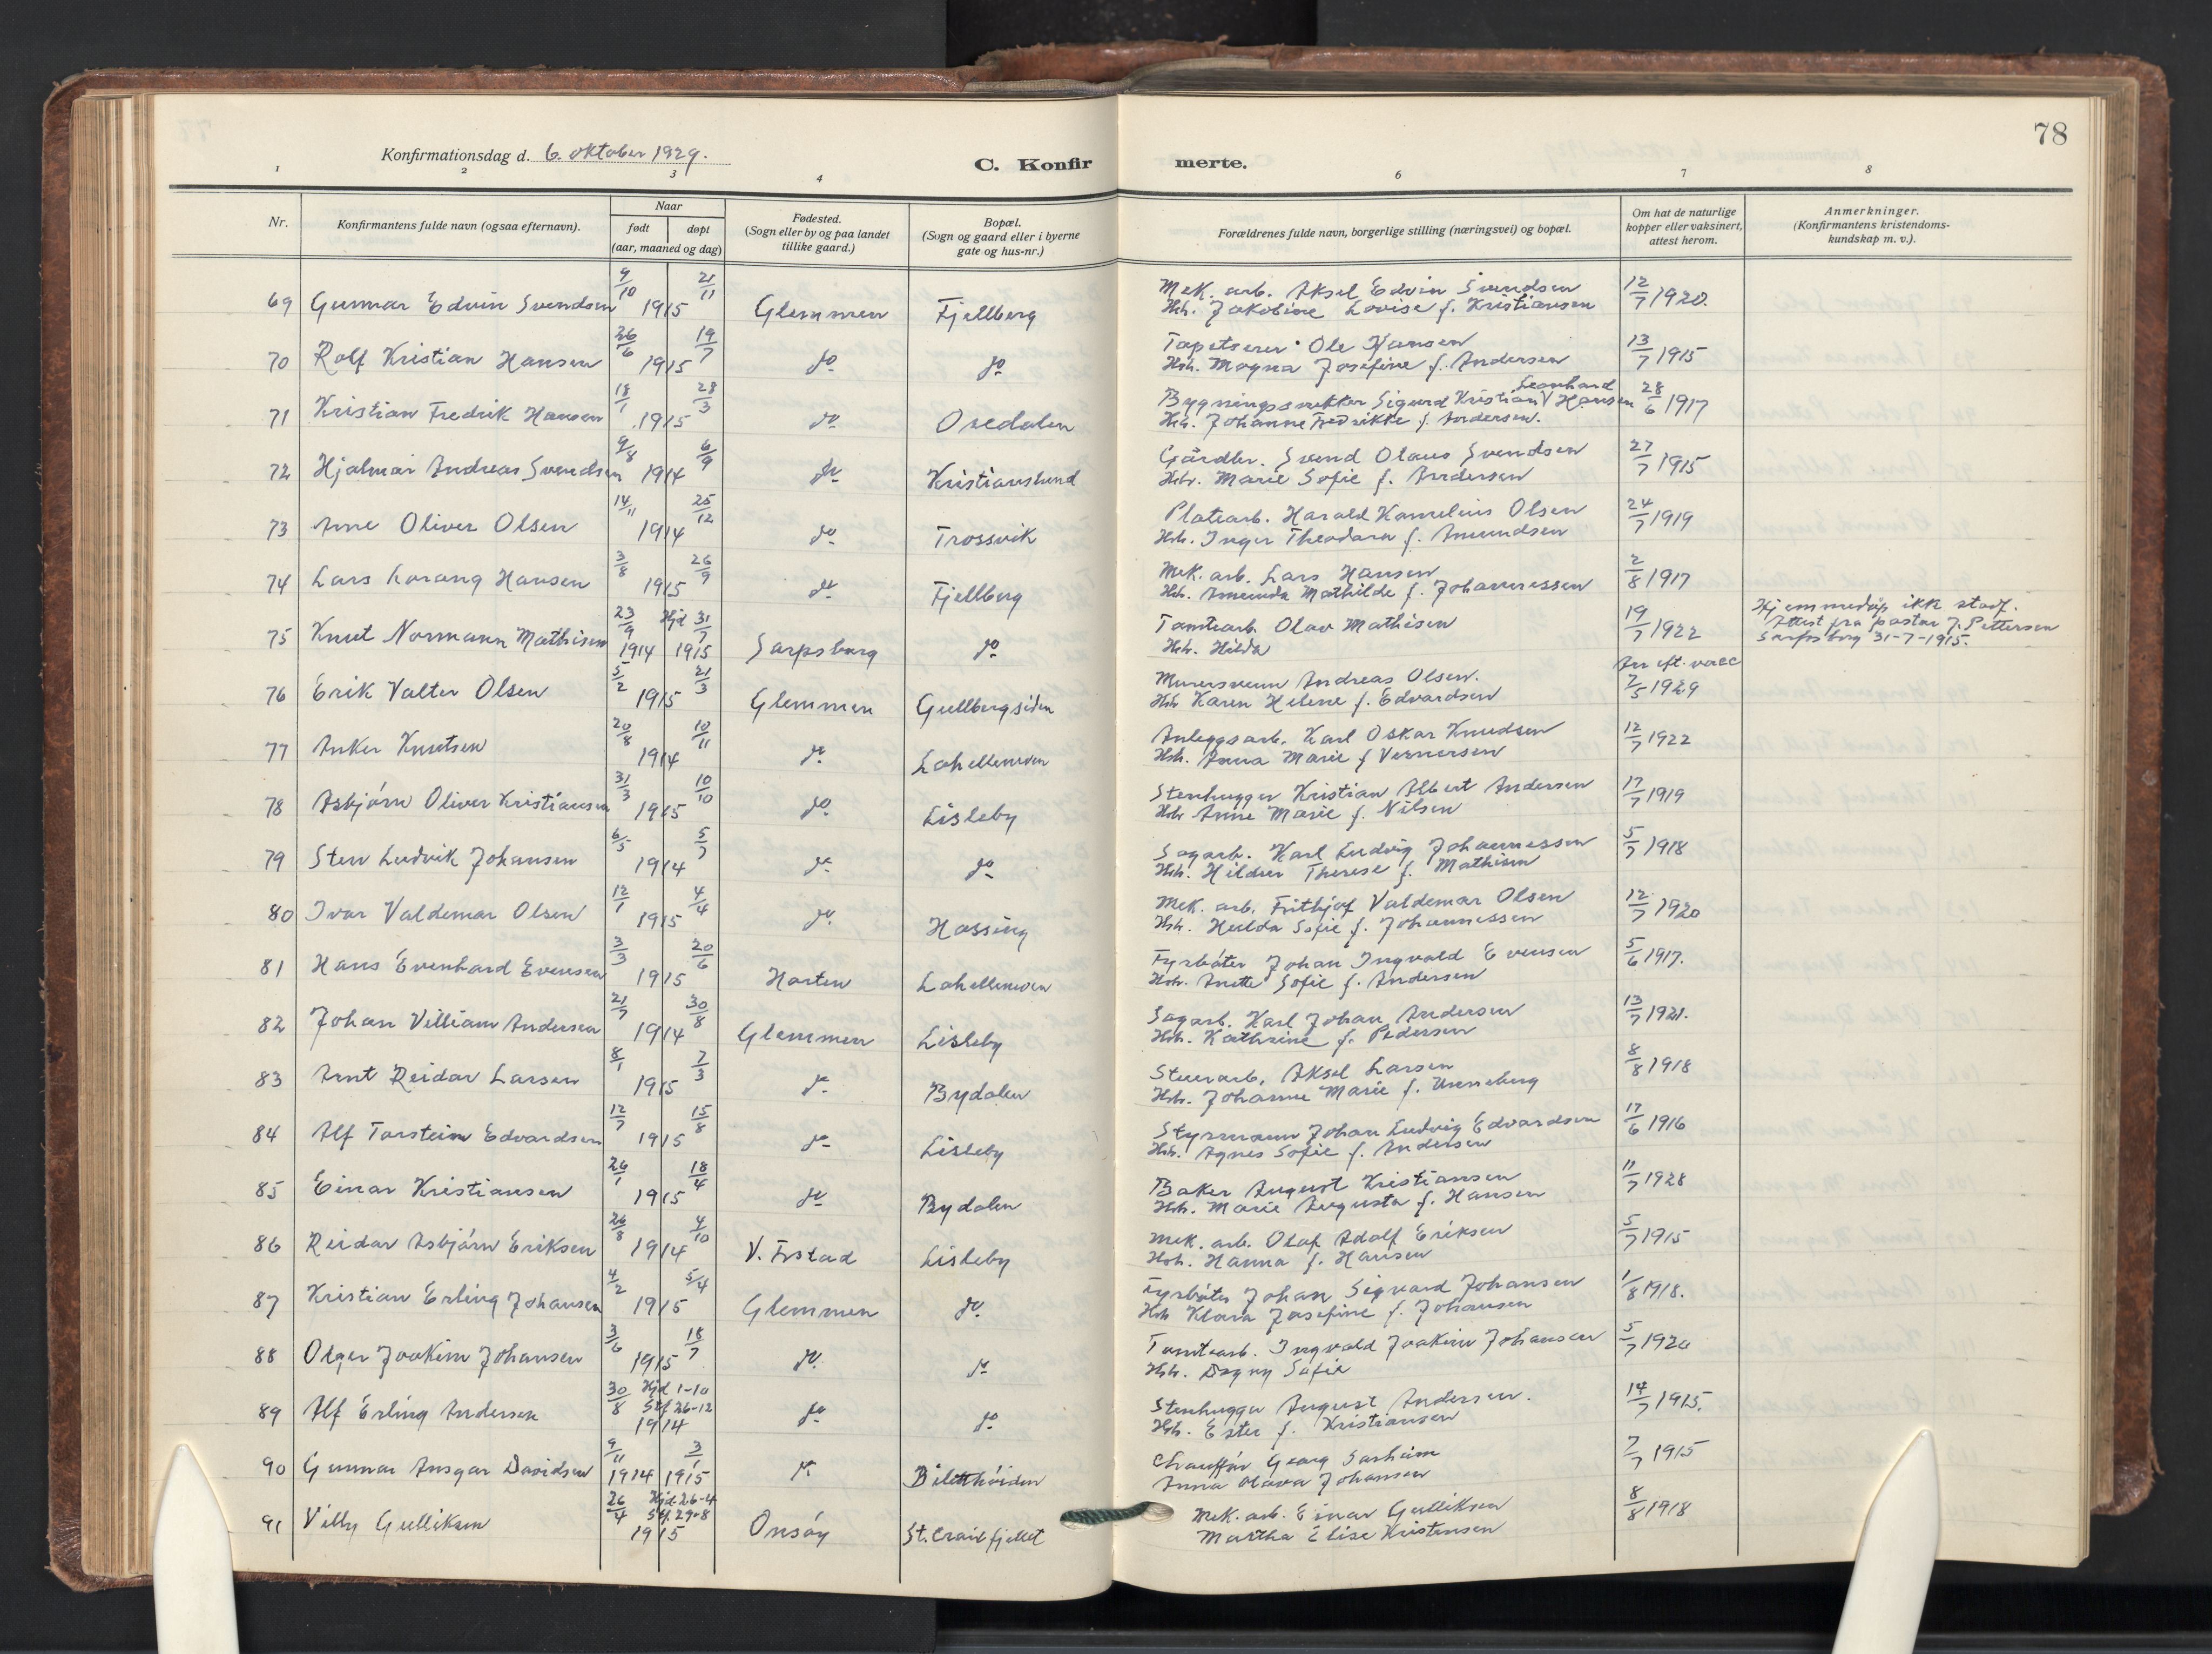 78
Konfirmationsdag d. 6. oktober 1929.
C. Konfirmerte.
1 2 3 4 6 7 8
Nr.
Konfirmantens fulde navn (ogsaa efternavn).
Naar
født
døpt
(aar, maaned og dag)
Fødested.
(Sogn eller by og paa landet
tillike gaard.)
Bopæl.
(Sogn og gaard eller i byerne
gate og hus-nr.)
Forældrenes fulde navn, borgerlige stilling (næringsvei) og bopæl.
Om hat de naturlige
kopper eller vaksinert,
attest herom.
Anmerkninger.
(Konfirmantens kristendoms-
kundskap m. v.).
69 Gunnar Edvin Svendsen 9/10 21/11 1915 Glemmen Fjellberg Mek. arb. Aksel Edvin Svendsen 12/7 1920.
Hh. Jakobine Lovise f. Kristiansen
70 Rolf Kristian Hansen 26/6 19/7 1915 do do Tapetserer Ole Hansen 13/7 1915
Hh. Magna Josefine f. Andersen
71 Kristian Fredrik Hansen 18/1 28/3 1915 do Oredalen Bygningssnekker Sigurd Kristian Leonhard Hansen 28/6 1917
Hh. Johanne Fredrikke f. Andersen.
72 Hjalmar Andreas Svendsen 9/8 6/9 1914 do Kristianslund Gårdbr. Svend Olaus Svendsen 27/7 1915
Hh. Marie Sofie f. Andersen
73 Arne Oliver Olsen 14/11 25/12 1914 do Trossvik Platearb. Harald Kornelius Olsen 24/7 1919
Hh. Inger Theodora f. Amundsen
74 Lars Lorang Hansen 3/8 26/9 1915 do Fjellberg Mek. arb. Lars Hansen 2/8 1917
Hh. Amunda Mathilde f. Johannessen
75 Knut Normann Mathisen 23/9 1914 Hjd 31/7 1915 Sarpsborg do Tomtearb. Olav Mathisen 19/7 1922 Hjemmedåp ikk stadf.
Hh. Hilda Attest fra pastor J. Pettersen
Sarpsborg 31-7-1915.
76 Erik Valter Olsen 5/2 21/3 1915 Glemmen Gullbergsiden Murersvenn Andreas Olsen. An eft. vacc 2/5 1929
Hh Karen Helene f. Edvardsen
77 Anker Knutsen 20/8 10/11 1914 do Lahellemoen Anleggsarb. Karl Oskar Knudsen 12/7 1922
Hh. Anna Marie f Vernersen
78 Asbjørn Oliver Kristiansen 31/3 10/10 1915 do Lisleby Stenhugger Kristian Albert Andersen 17/7 1919
Hh Anne Marie f. Nilsen
79 Sten Ludvik Johansen 6/5 5/7 1914 do do Sagarb. Karl Ludvig Johannessen 5/7 1918
Hh. Hildur Therese f. Mathisen
80 Ivar Valdemar Olsen 12/1 4/4 1915 do Hassing Mek. arb. Frithjof Valdemar Olsen 12/7 1920
Hh. Hulda Sofie f. Johannessen
81 Hans Evenhard Evensen 3/3 20/6 1915 Horten Lahellemoen Fyrbøter Johan Ingvald Evensen 5/6 1917.
Hh. Anette Sofie f. Andersen
82 Johan Villiam Andersen 21/7 30/8 1914 Glemmen Lisleby Sagarb. Karl Johan Andersen 13/7 1921.
Hh. Kathrine f. Pedersen
83 Arnt Reidar Larsen 8/1 7/3 1915 do Bydalen Stuerarb. Aksel Larsen 8/8 1918
Hh. Johanne Marie f. Unneberg
84 Alf Torstein Edvardsen 12/7 15/8 1915 do Lisleby Styrmann Johan Ludvig Edvardsen 17/6 1916
Hh. Agnes Sofie f. Andersen
85 Einar Kristiansen 26/1 18/4 1915 do Bydalen Baker August Kristiansen 11/7 1928
Hh. Marie Augusta f. Hansen
86 Reidar Asbjørn Eriksen 26/8 4/10 1914 V. Frstad Lisleby Mek. arb. Olaf Adolf Eriksen 5/7 1915
Hh. Hanna f. Hansen
87 Kristian Erling Johansen 4/2 5/4 1915 Glemmen do Fyrbøter Johan Sigvard Johansen 1/8 1918.
Hh Klara Josefine f. Johansen
88 Olger Joakim Johansen 3/6 18/7 1915 do do Tomtearb. Ingvald Joakim Johansen 5/7 1920
Hh. Dagny Sofie
89 Alf Erling Andersen 30/8 Hjd 1-10 Stf 26-12 1914 do do Stenhugger August Andersen. 14/7 1915.
Hh. Ester f. Kristiansen
90 Gunnar Ansgar Davidsen 9/11 1914 3/1 1915 do Chauffør Georg Sarheim 7/7 1915
Anna Olava Johansen
91 Villy Gulliksen 26/4 Hjd 26-4 Stf. 29-8 1915 Onsøy St. Croixfjellet Mek. arb. Einar Gulliksen 8/8 1918
Martha Elise Kristensen